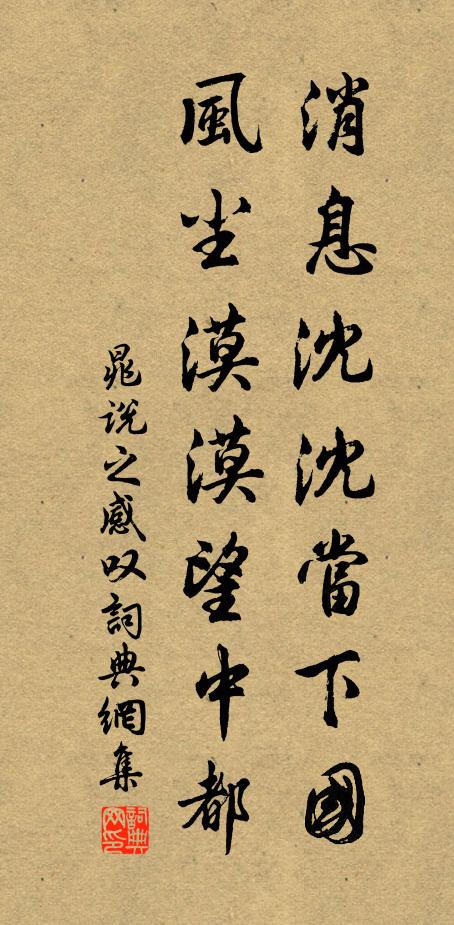 消息沈沈當下國
風尘漠漠望中都
晁說之感叹詞典網集
詞典网印